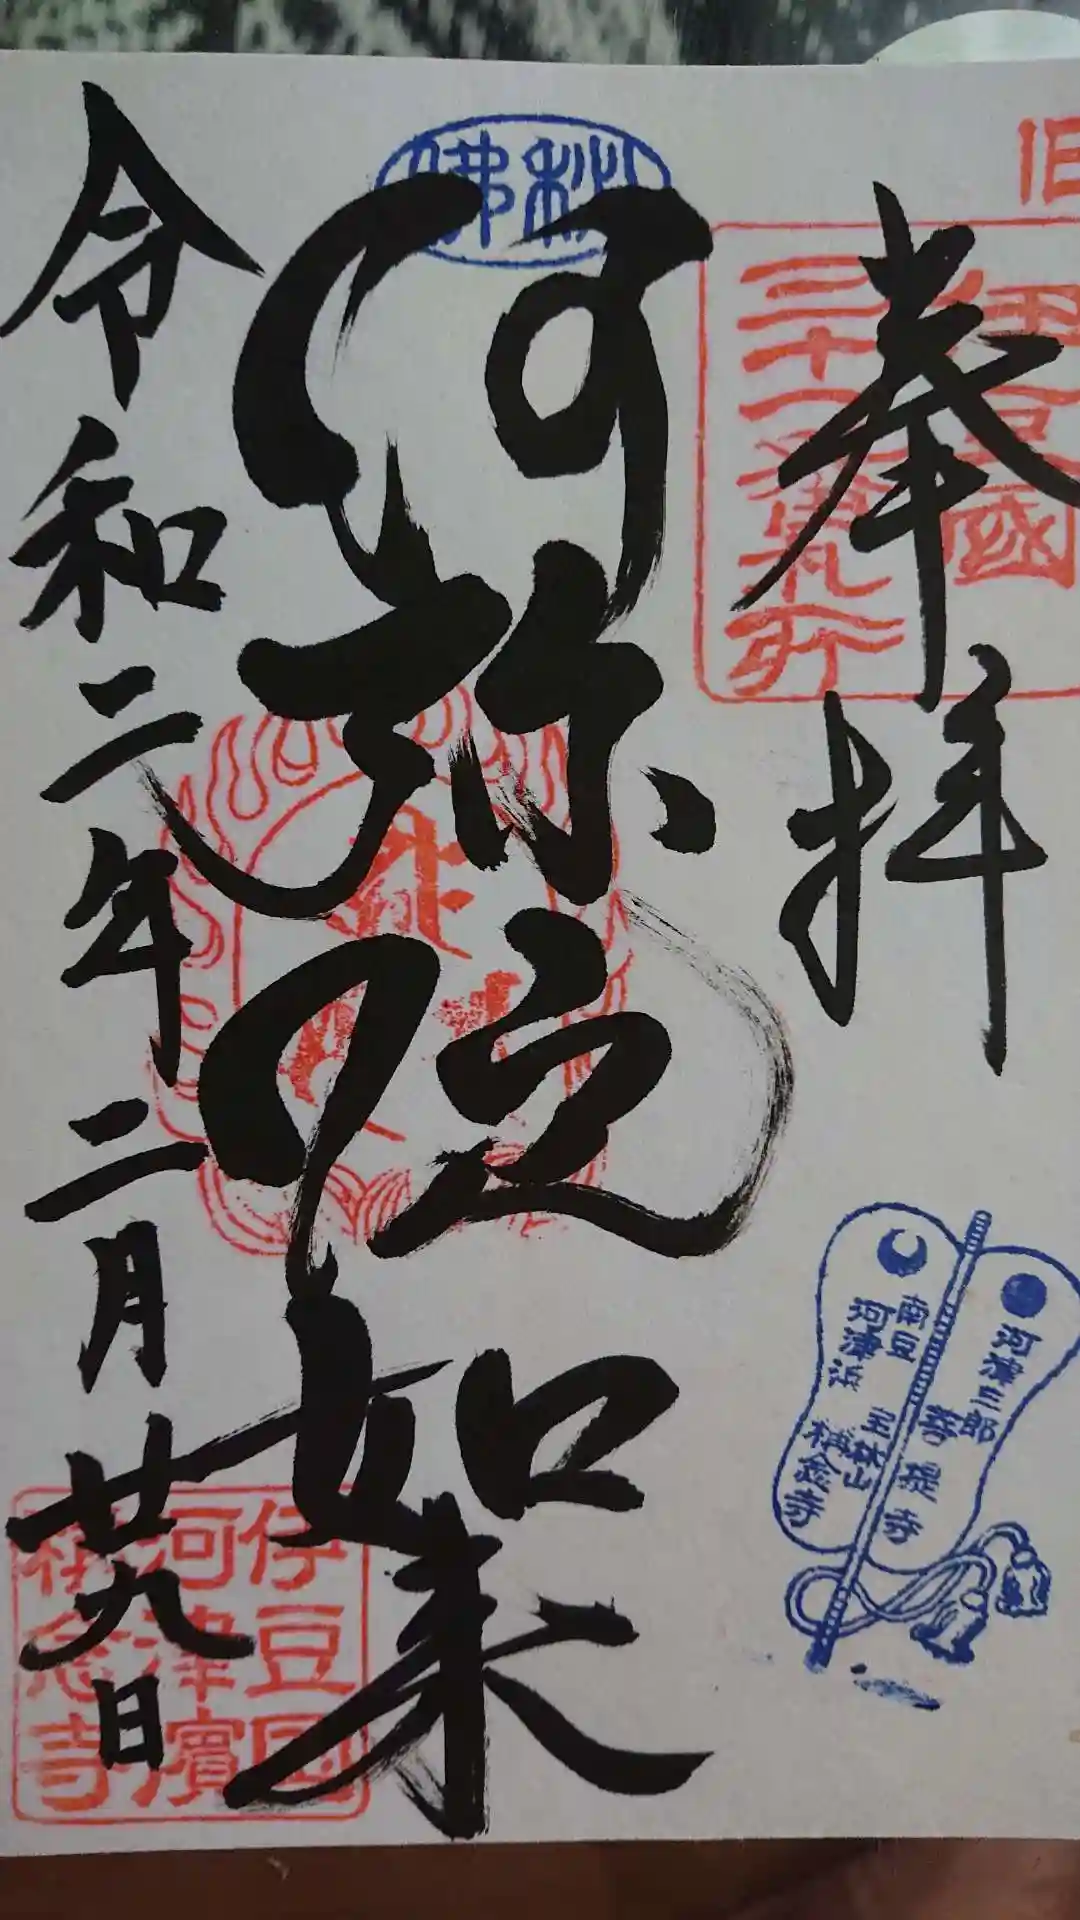 旧
奉拝
伊豆國
三十三番札所
秘佛
阿弥陀如来
令和二年二月廿九日
河津三郎
菩提寺
南豆
河津浜
称念寺
伊豆国
河津濱
称念寺